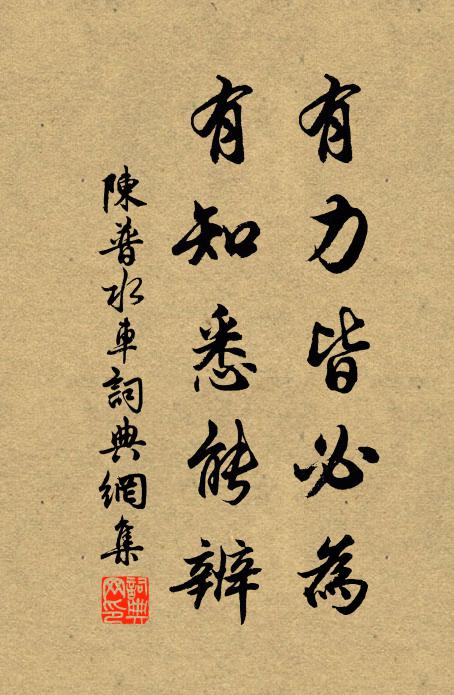 有力皆必為
有知悉能辨
陳普水車詞典網集
詞典网印